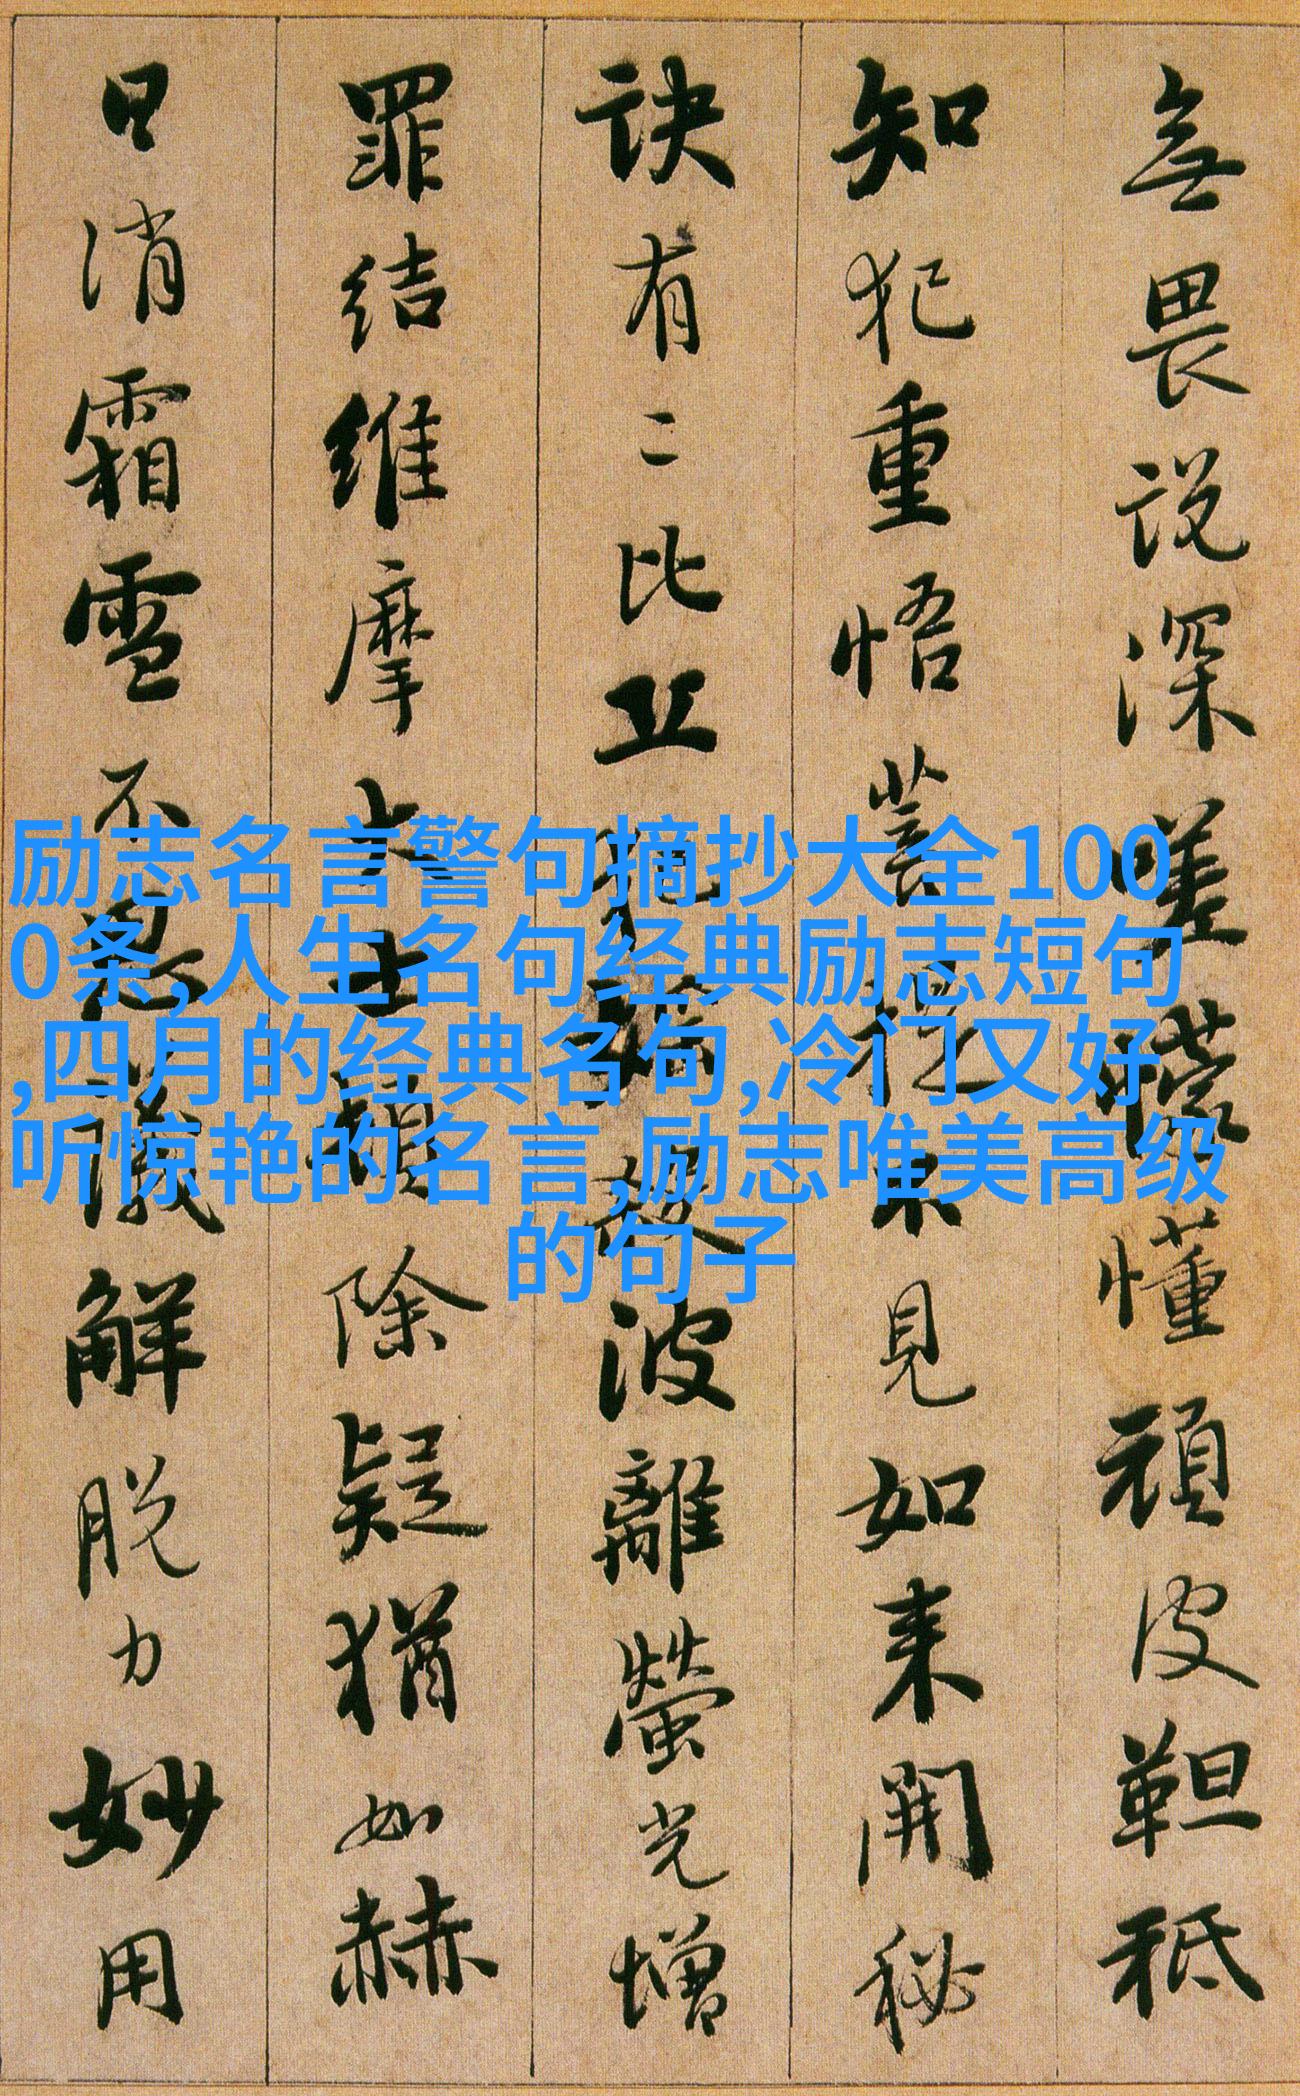 無畏説深嗟懞懂頑皮靼秖
知犯重悟菩提不見如来開秘
訣有二比丘犯婬殺波離螢光增
罪结維摩大士頓除疑猶如赫
日消霜雪不思議解脱力妙用
励志名言警句摘抄大全100
0条,人生名句经典励志短句
,四月的经典名句,冷门又好
听惊艳的名言,励志唯美高级
的句子